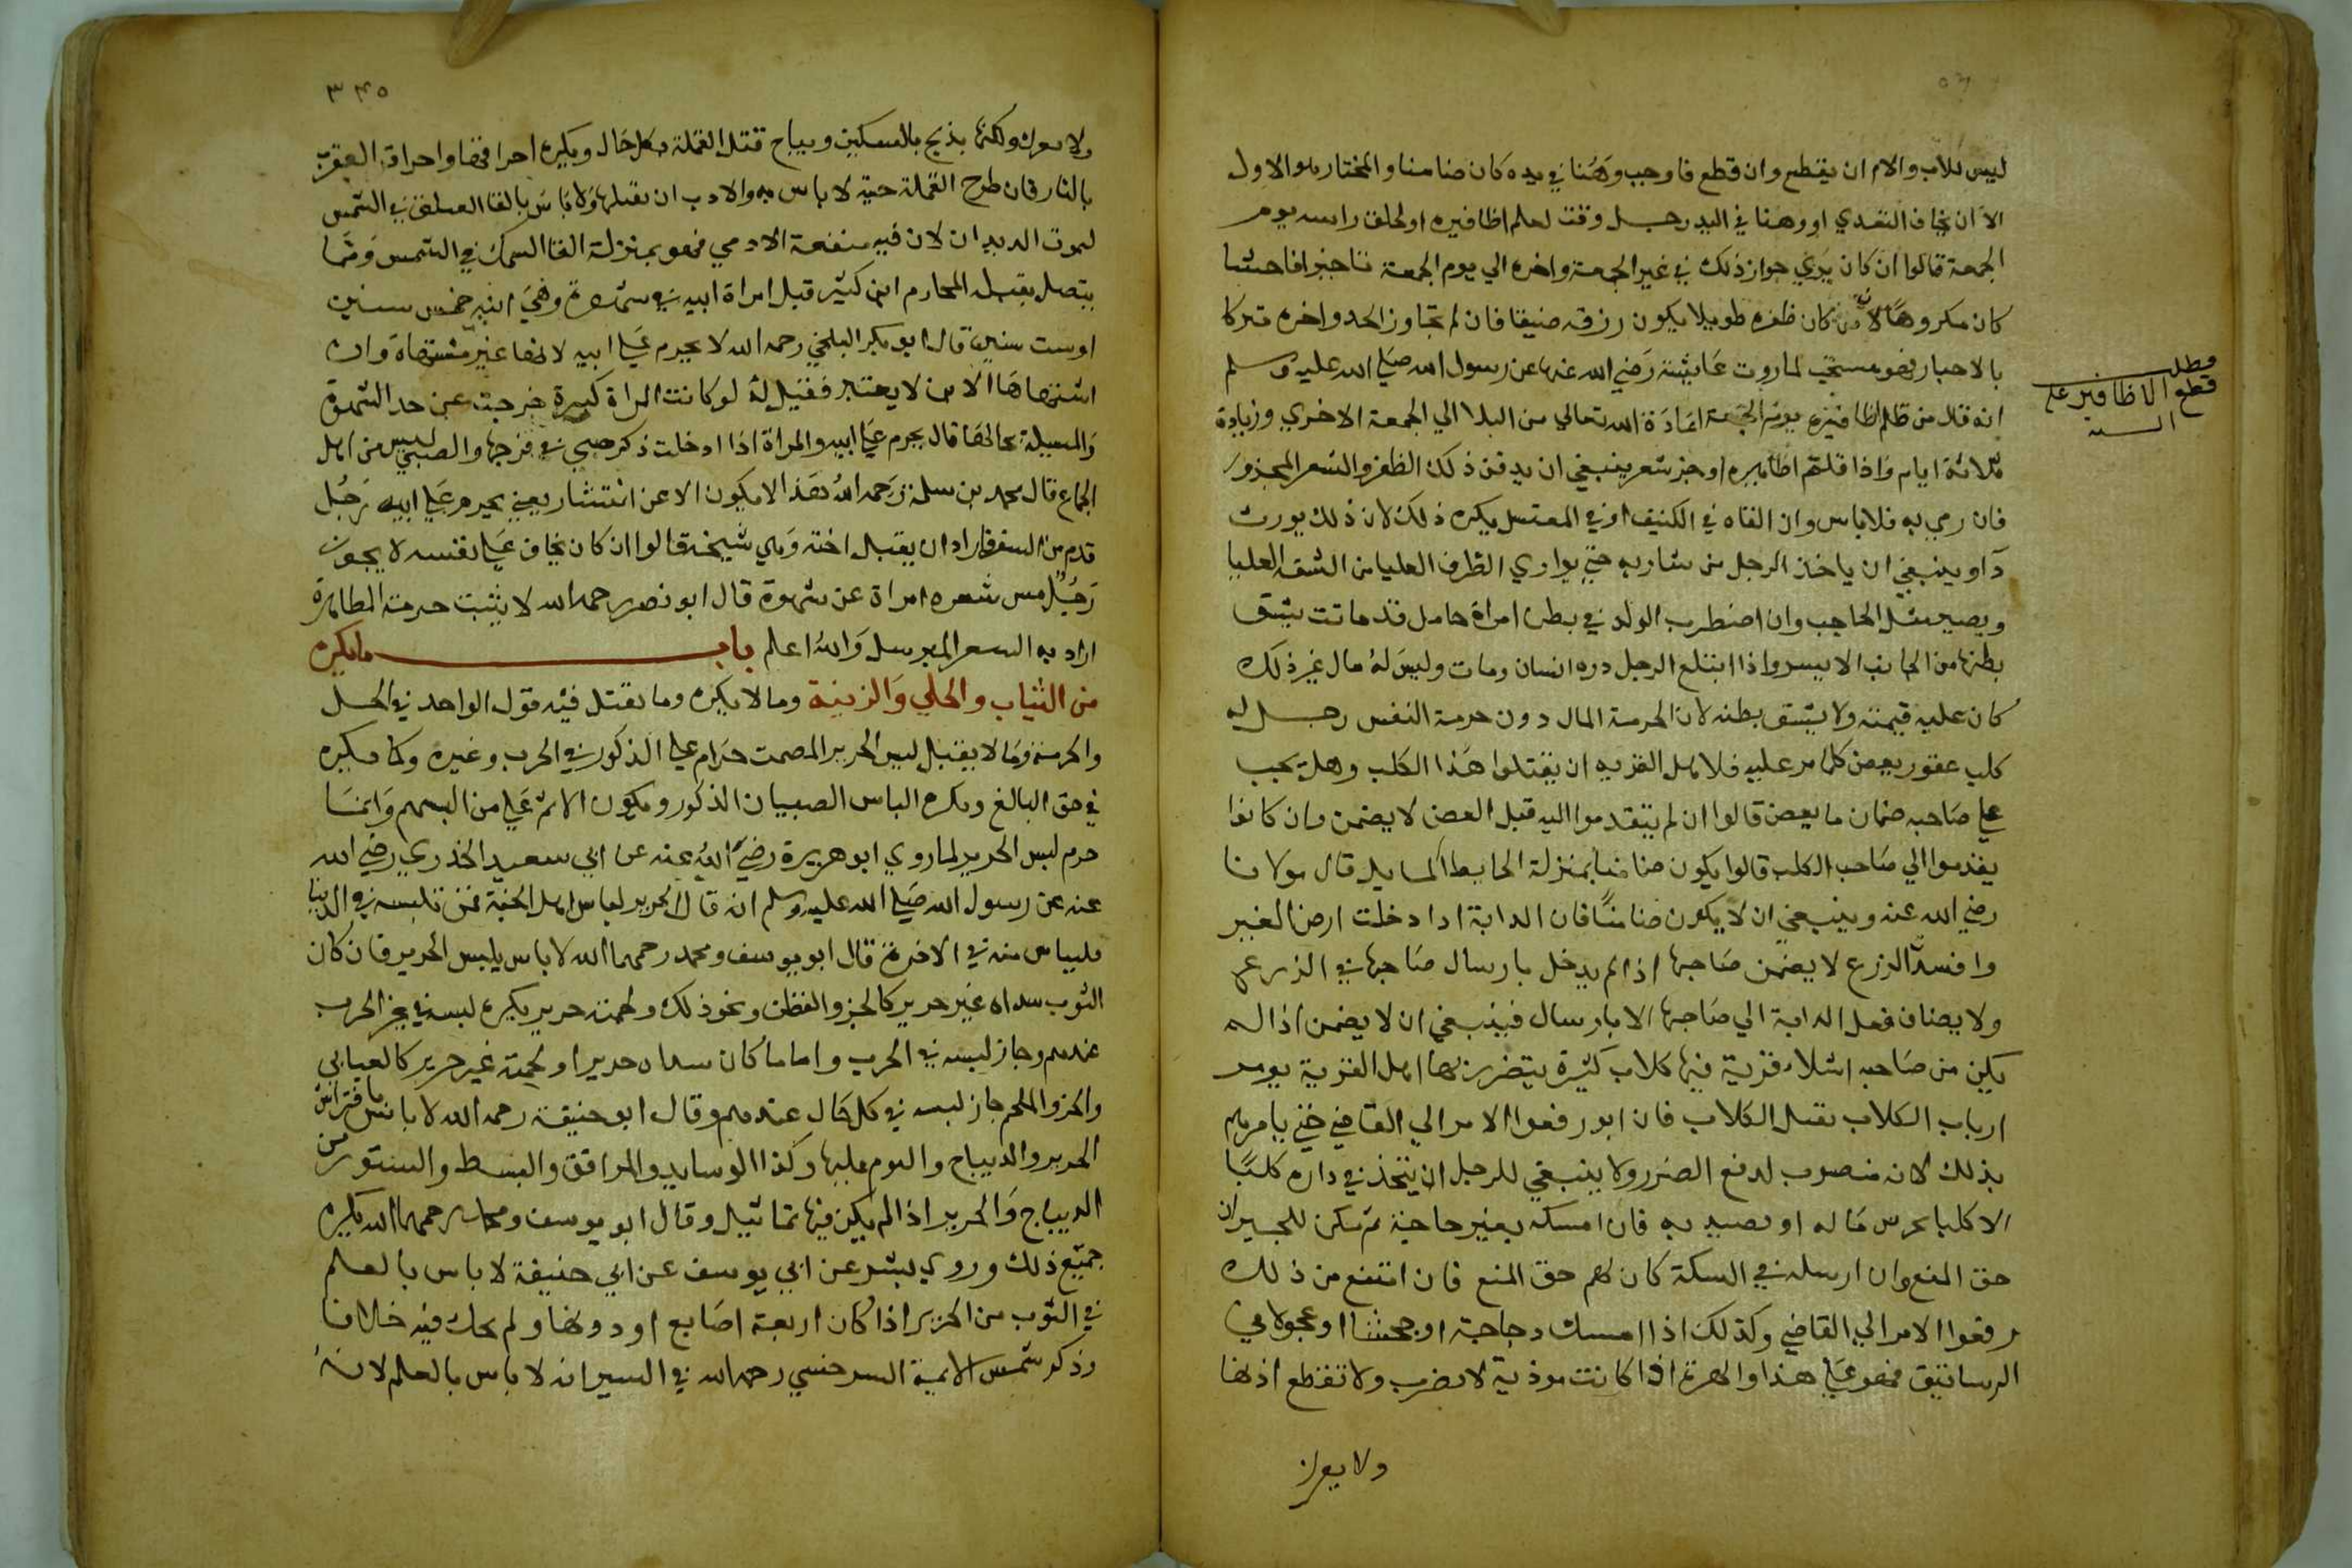 ليس للاب والام ان يقطع وان قطع فاوجب وهنا في يده كان ضامنا والمختار هو الاول
الا ان يخاف التعدي او وهنا في اليد رجل وقت لقلم اظافيره او لحلق راسه يوم
الجمعة قالوا ان كان يري جواز ذلك في غير الجمعة واخره الي يوم الجمعة تاخيرا فاحشا
كان مكروها لان من كان ظفره طويلا يكون رزقه ضيقا فان لم يتجاوز الحد واخره تبركا
بالاخبار فهو مستحب لما روت عايشة رضي الله عنها عن رسول الله صلي الله عليه وسلم
مطلب
قطع الاظافير علي
السنة
انه قال من قلم اظافيره يوم الجمعة اعاذه الله تعالي من البلا الي الجمعة الاخري وزيادة
ثلاثة ايام واذا قلم اظافيره او جز شعره ينبغي ان يدفن ذلك الظفر والشعر المجذوز
فان رمي به فلا باس وان القاه في الكنيف او في المغتسل يكره ذلك لان ذلك يورث
دآ وينبغي ان ياخذ الرجل من شاربه حتي يوازي الطرف العليا من الشفه العليا
ويصير مثل الحاجب وان اضطرب الولد في بطن امراة حامل قد ماتت يشق
بطنها من الجانب الايسر واذا ابتلع الرجل دره انسان ومات وليس له مال غير ذلك
كان عليه قيمته ولا يشق بطنه لان الحرمة المال دون حرمة النفس رجل له
كلب عقور يعض كل من مر عليه فلاهل القرية ان يقتلوا هذا الكلب وهل يجب
علي صاحبه ضمان ما يعض قالوا ان لم يتقدموا اليه قبل العض لا يضمن وان كانوا
يقدموا الي صاحب الكلب قالوا يكون ضامنا بمنزلة الحايط المايل قال مولانا
رضي الله عنه وينبغي ان لا يكون ضامنا فان الدابة اذا دخلت ارض الغير
وافسدت الزرع لا يضمن صاحبها اذا لم يدخل بارسال صاحبها في الزرع
ولا يضاف فعل الدابة الي صاحبها الا بارسال فينبغي ان لا يضمن اذا لم
يكن من صاحبه اشلاء قرية فيها كلاب كثيرة يتضرر بها اهل القرية يومر
ارباب الكلاب بقتل الكلاب فان ابوا رفعوا الامر الي القاضي حتي يامرهم
بذلك لانه منصوب لدفع الضرر ولا ينبغي للرجل ان يتخذ في داره كلبا
الا كلبا يحرس ماله او يصيد به فان امسكه بغير حاجة لم يكن للجيران
حق المنع وان ارسله في السكة كان لهم حق المنع فان امتنع من ذلك
رفعوا الامر الي القاضي وكذلك اذا امسك دجاجة او جحشا او عجولا في
الرساتيق فهو علي هذا والهرة اذا كانت موذية لا يضرب ولا تقطع اذنها
ولا يعرك
٣٤٥
ولا يعرك ولكنها يذبح بالسكين ويباح قتل القملة بكل حال ويكره احراقها واحراق العقرب
بالنار فان طرح القملة حية لا باس به والادب ان يقتلها ولا باس بالقا الفيلق في الشمس
ليموت الديدان لان فيه منفعة الادمي فهو بمنزلة القا السمك في الشمس ومما
يتصل بقبلة المحارم ابن كثير قبل امراة ابيه في شهوة وهي ابنة خمس سنين
او ست سنين قال ابو بكر البلخي رحمه الله لا يحرم علي ابيه لانها غير مشتهاة وان
اشتهاها الابن لا يعتبر فقيل له لو كانت المراة كبيرة خرجت عن حد الشهوة
والمسيلة بحالها قال يحرم علي ابيه والمراة اذا ادخلت ذكر صبي في فرجها والصبي ليس من اهل
الجماع قال محمد بن سلمة رحمه الله هذا لا يكون الا عن انتشار يعني يحرم علي ابيه رجل
قدم من السفر فاراد ان يقبل اخته وهي شيخة قالوا ان كان يخاف علي نفسه لا يجوز
رجل مس شعره امراة عن شهوة قال ابو نصر رحمه الله لا يثبت حرمة المصاهرة
اراد به الشعر المسترسل والله اعلم باب ما يكره
من الثياب والحلي والزينة وما لا يكره وما يقبل فيه قول الواحد في الحل
والحرمة وما لا يقبل لبس الحرير المصمت حرام علي الذكور في الحرب وغيره وكما يكره
في حق البالغ ويكره الباس الصبيان الذكور ويكون الاثم علي من البسهم وانما
حرم لبس الحرير لما روي ابو هريرة رضي الله عنه عن ابي سعيد الخذري رضي الله
عنه عن رسول الله صلي الله عليه وسلم انه قال الحرير لباس اهل الجنة فمن تلبسه في الدنيا
فليباس منه في الاخرة قال ابو يوسف ومحمد رحمهما الله لا باس يلبس الحرير فان كان
الثوب سداه غير حرير كالخز والقطن ونحو ذلك ولحمته حرير يكره لبسه في غير الحرب
عندهم وجاز لبسه في الحرب واما ما كان سداه حديرا ولحمته غير حرير كالعتابي
والخز والملحم جاز لبسه في كل حال عندهم وقال ابو حنيفة رحمه الله لا باس بافتراش
الحرير والديباج والنوم عليها وكذا الوسايد والمرافق والبسط والستور من
الديباج والحرير اذا لم يكن فيها تماثيل وقال ابو يوسف ومحمد رحمهما الله يكره
جميع ذلك وروي بشر عن ابي يوسف عن ابي حنيفة لا باس بالعلم
في الثوب من الحرير اذا كان اربعة اصابع او دونها ولم يحك فيه خلافا
وذكر شمس الايمة السرخسي رحمه الله في السير انه لا باس بالعلم لانه